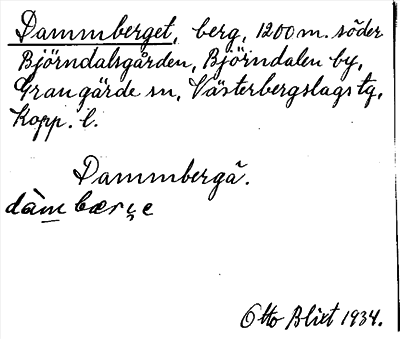 Dammberget, berg, 1200 m. söder
Björndalsgården, Björndalen by,
Grangärde sn, Västerbergslags tg,
Kopp. l.
Dammbergä.
dàm bærçe
Otto Blixt 1934.